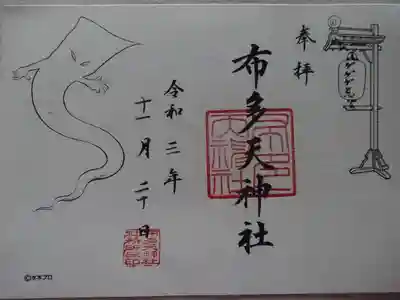 奉拝
布多天神社
令和三年
十一月二十日
©水木プロ